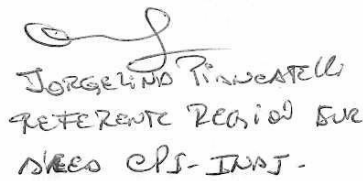 JORGELINA PIANCATELLI
REFERENTE REGIÓN SUR
ÁREA CPJ-INAJ.